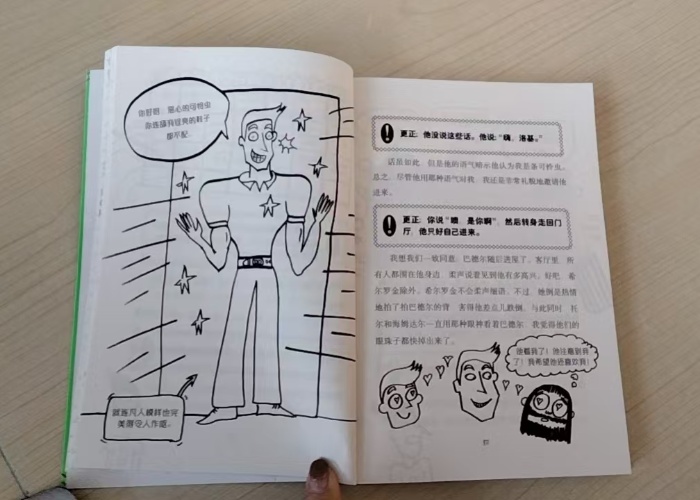 你好啊，恶心的可怜虫
你连舔我锃亮的鞋子
都不配
就连凡人模样也完
美得令人作呕。
更正：他没说这些话。他说：“嗨，洛基。”
话虽如此，但是他的语气暗示他认为我是条可怜虫。
总之，尽管他用那种语气对我，我还是非常礼貌地邀请他
进来。
更正：你说“噢，是你啊”，然后转身走回门
厅，他只好自己进来。
我想我们一致同意，巴德尔随后进屋了。客厅里，所
有人都围在他身边，柔声说着见到他有多高兴。好吧，希
尔罗金除外。希尔罗金不会柔声细语。不过，她倒是热情
地拍了拍巴德尔的背，害得他差点儿跌倒。与此同时，托
尔和海姆达尔一直用那种眼神看着巴德尔，我觉得他们的
眼珠子都快掉出来了。
他看我了！他注意到我
了！我希望他喜欢我！